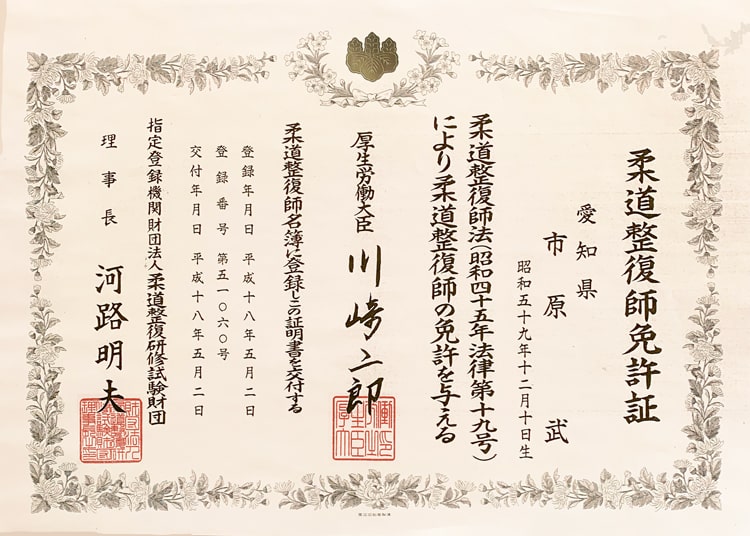 柔道整復師免許証
愛知県
市原　武
昭和五十九年十二月十日生
柔道整復師法(昭和四十五年法律第十九号)
により柔道整復師の免許を与える
厚生労働大臣　川崎二郎
柔道整復師名簿に登録しこの証明書を交付する
登録年月日　平成十八年五月二日
登録番号　第五一〇六〇号
交付年月日　平成十八年五月二日
指定登録機関財団法人柔道整復研修試験財団
理事長　河路明夫